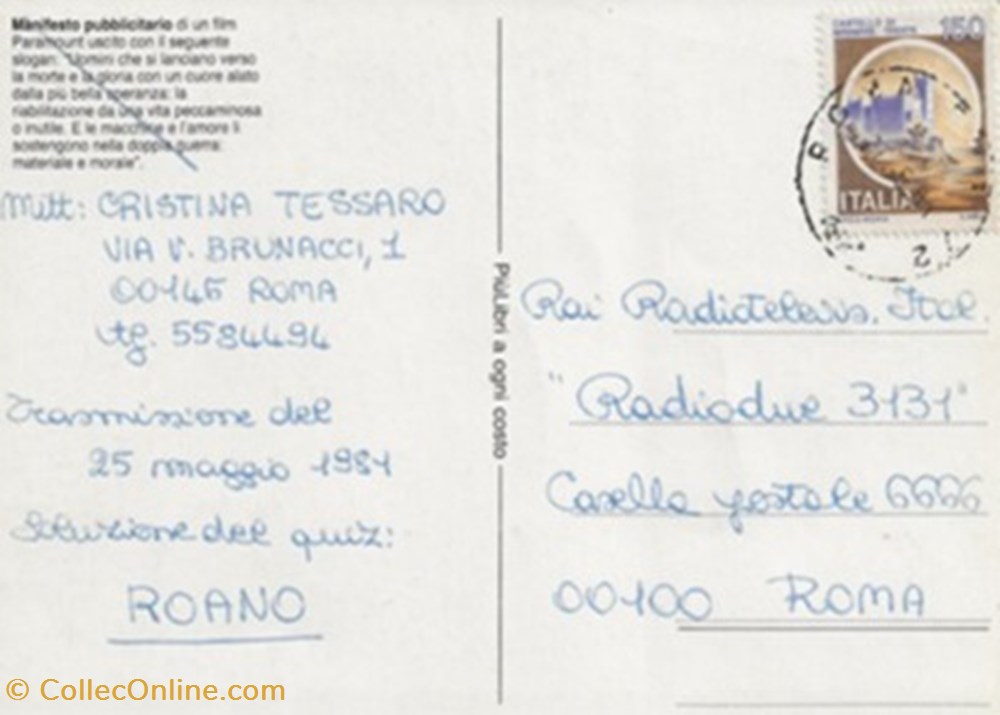 Manifesto pubblicitario di un film
Paramount uscito con il seguente
slogan: "Uomini che si lanciano verso
la morte e la gloria con un cuore alato
dalla più bella speranza: la
riabilitazione da una vita peccaminosa
o inutile. E le macchine e l'amore li
sostengono nella doppia guerra:
materiale e morale".
Mitt: CRISTINA TESSARO
VIA V. BRUNACCI, 1
00146 ROMA
tlg. 5584494
Trasmissione del
25 maggio 1981
Soluzione del quiz:
ROANO
PiùLibri a ogni costo
CASTELLO DI
150
ITALIA
ROMA
Rai Radiotelevis. Ital.
"Radiodue 3131"
Casella postale 6666
00100 ROMA
© CollecOnline.com